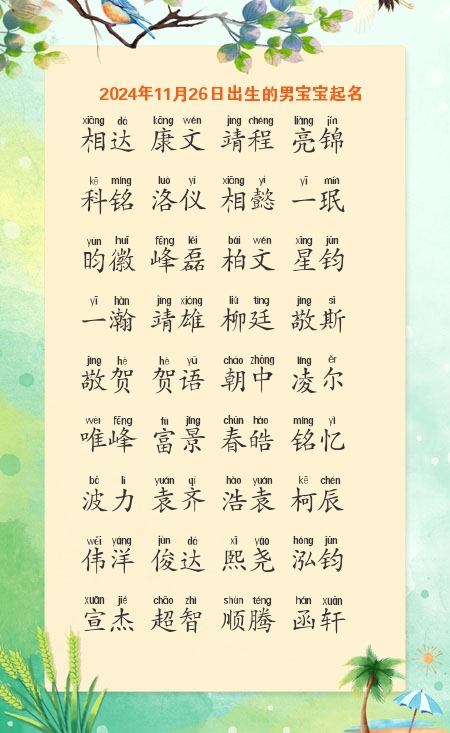 2024年11月26日出生的男宝宝起名
xiāng dá kāng wén jìng chéng liàng jǐn
相达 康文 靖程 亮锦
kē míng luò yí xiāng yì yī mín
科铭 洛仪 相懿 一珉
yún huī fēng lěi bǎi wén xīng jūn
昀徽 峰磊 柏文 星钧
yī hàn jìng xióng liǔ tíng jìng sī
一瀚 靖雄 柳廷 敬斯
jìng hè hè yǔ cháo zhōng líng ěr
敬贺 贺语 朝中 凌尔
wéi fēng fù jǐng chūn hào míng yì
唯峰 富景 春皓 铭忆
bō lì yuán qí hào yuán kē chén
波力 袁齐 浩袁 柯辰
wěi yáng jùn dá xī yáo hóng jūn
伟洋 俊达 熙尧 泓钧
xuān jié chāo zhì shùn téng hán xuān
宣杰 超智 顺腾 函轩